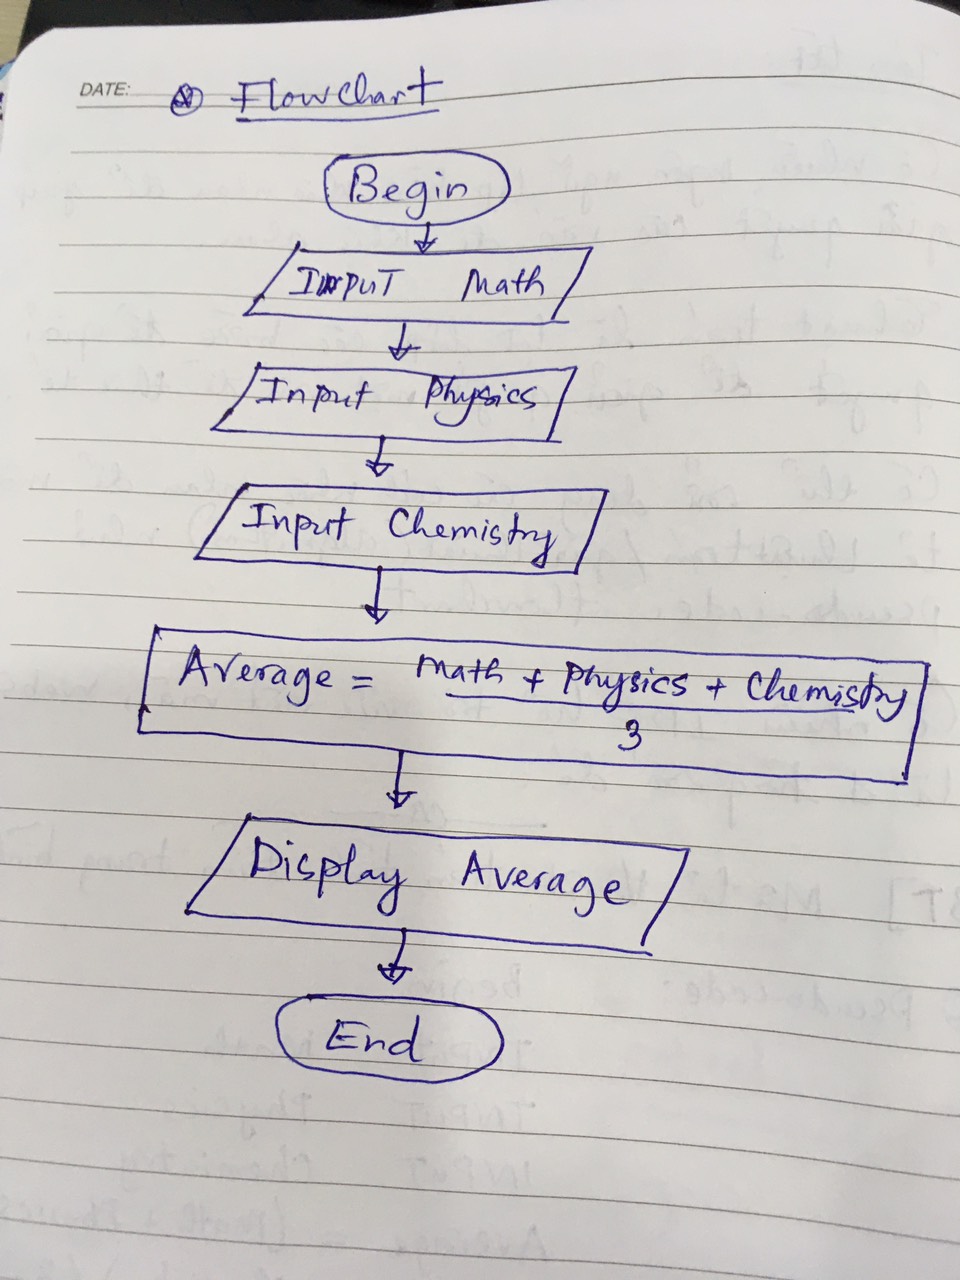 DATE:
Flowchart
Begin
INPUT Math
Input Physics
Input Chemistry
Average = Math + Physics + Chemistry
3
Display Average
End